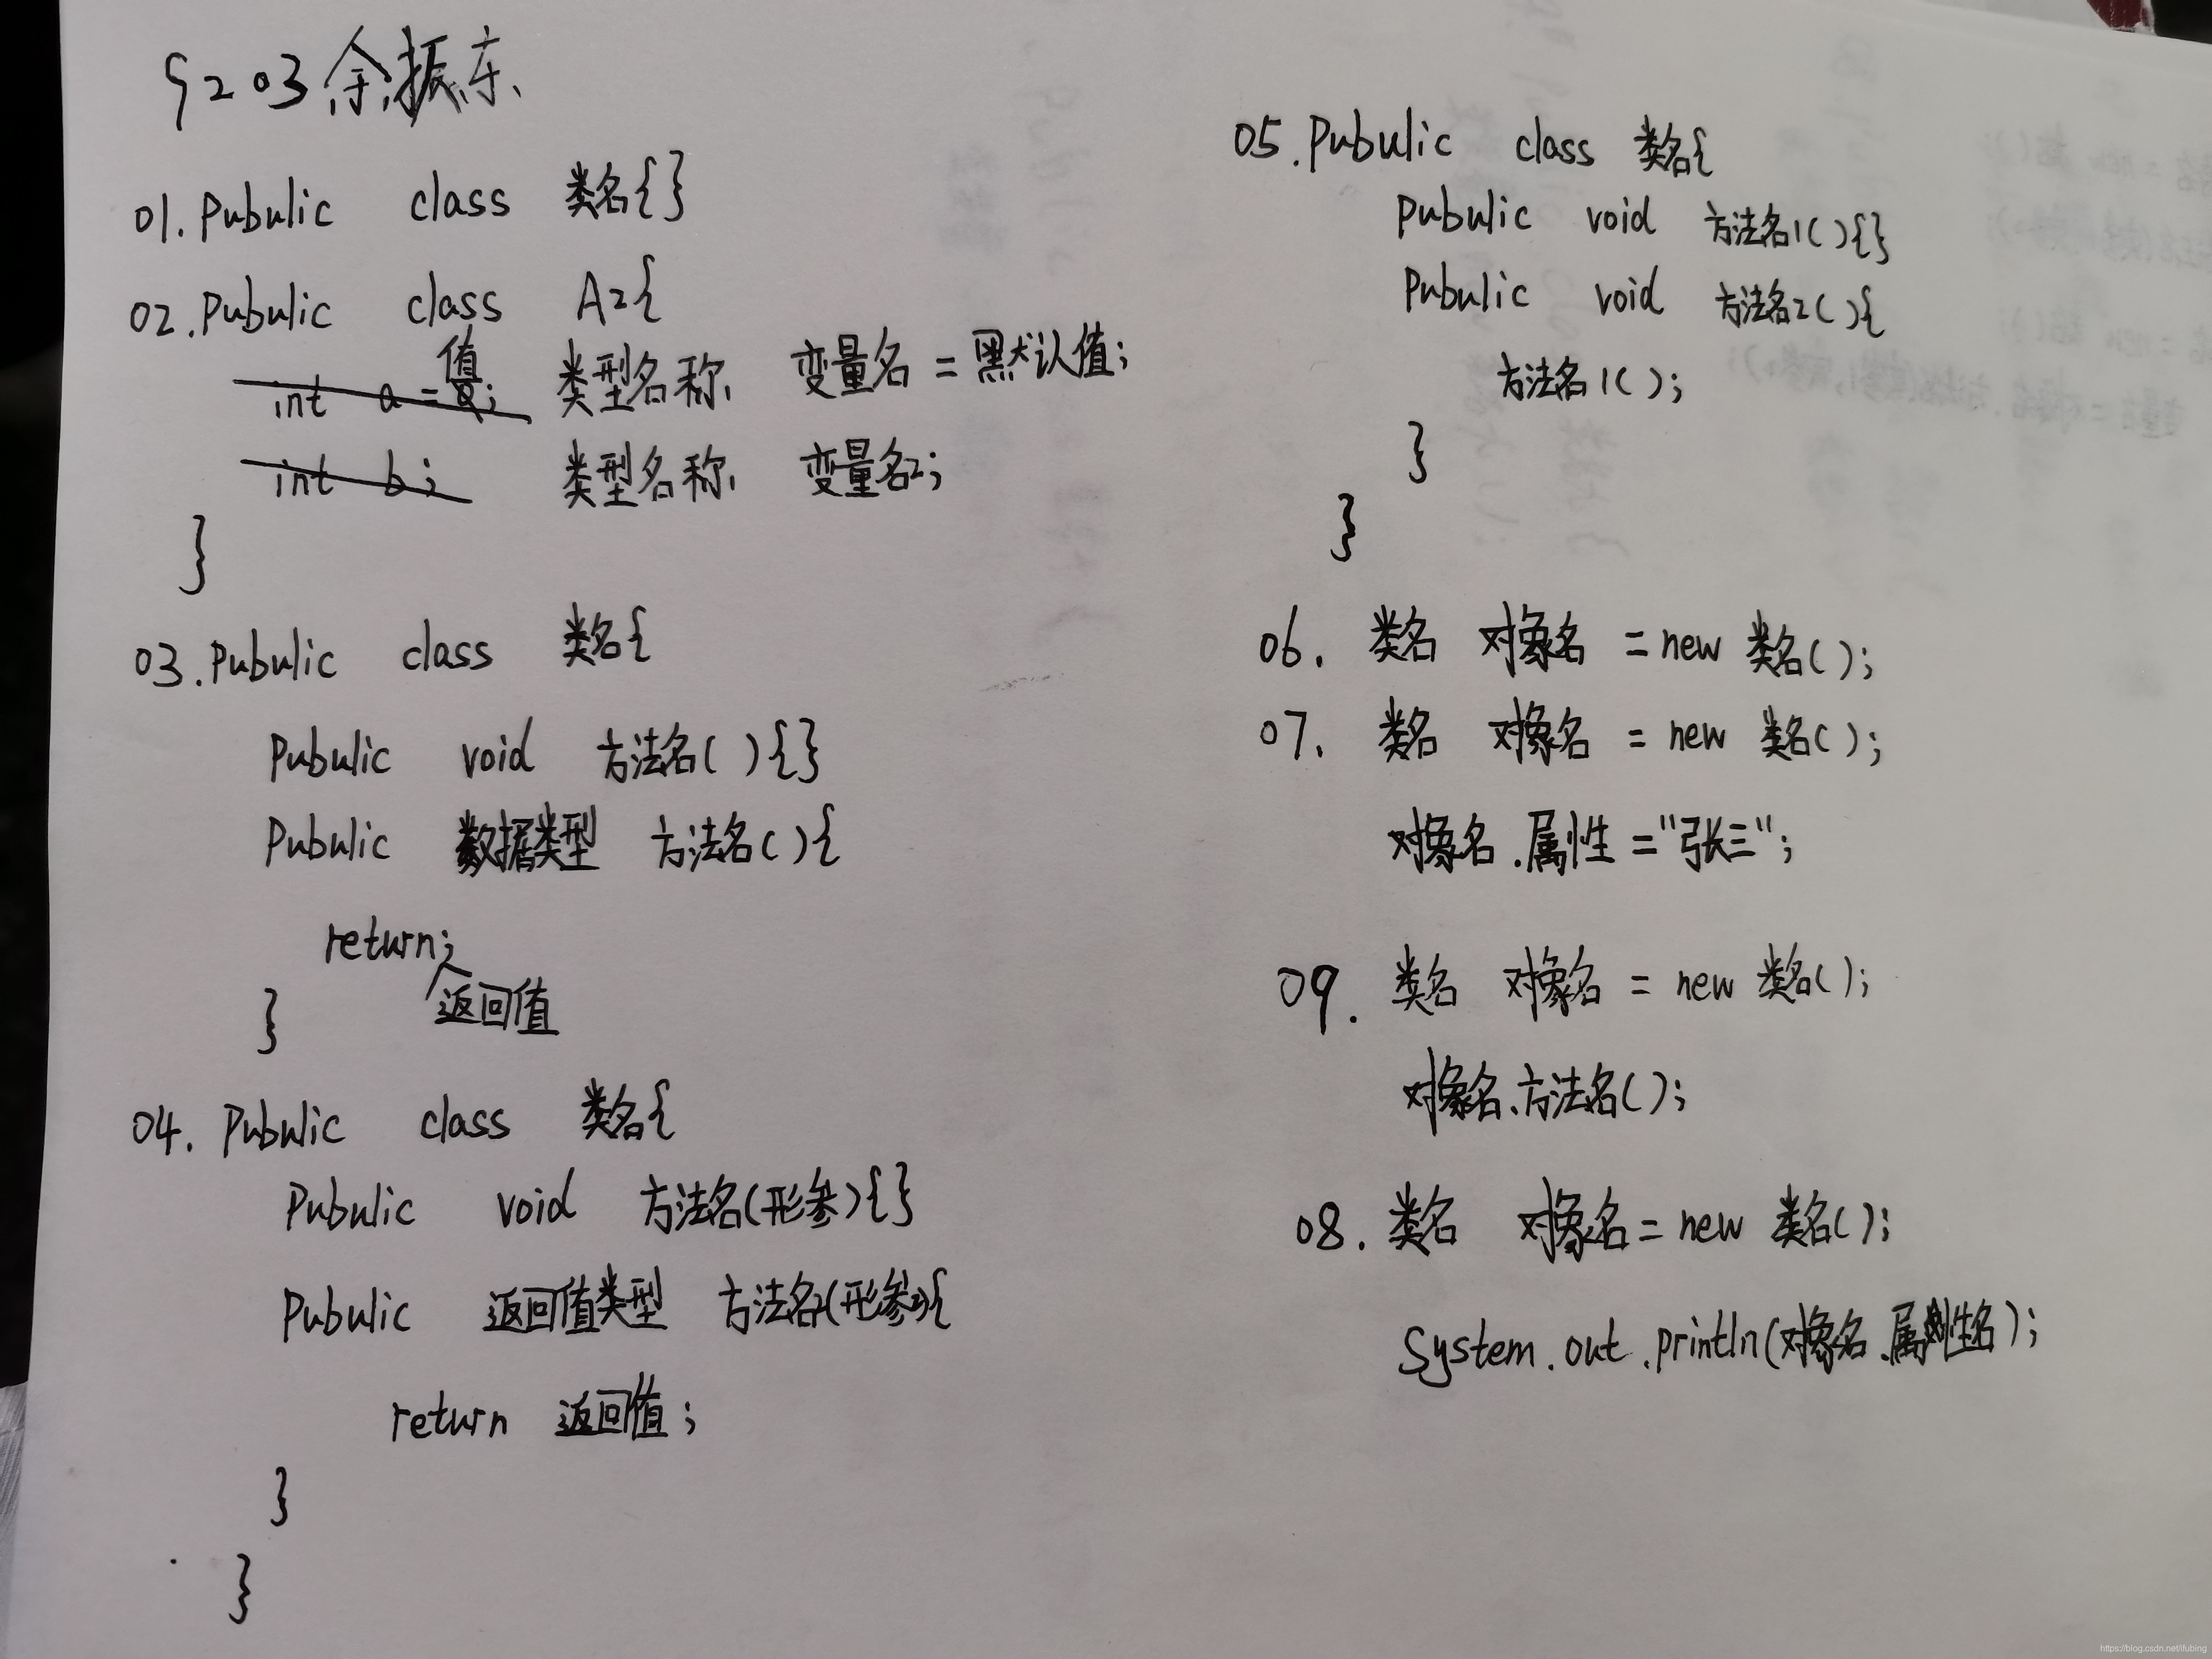 S203余振东
01.Pubulic class 类名{}
02.Pubulic class A2{
int a = 值; 类型名称1 变量名 = 默认值;
int b; 类型名称1 变量名2;
}
03.Pubulic class 类名{
Pubulic void 方法名( ){}
Pubulic 数据类型 方法名( ){
return;
返回值
}
04. Pubulic class 类名{
Pubulic void 方法名(形参){}
Pubulic 返回值类型 方法名2(形参2){
return 返回值;
}
}
05.Pubulic class 类名{
Pubulic void 方法名1( ){}
Pubulic void 方法名2( ){
方法名1( );
}
}
06. 类名 对象名 = new 类名( );
07. 类名 对象名 = new 类名( );
对象名.属性 = "张三";
09. 类名 对象名 = new 类名( );
对象名.方法名( );
08. 类名 对象名 = new 类名( );
System.out.println(对象名.属性名);
https://blog.csdn.net/ifubing